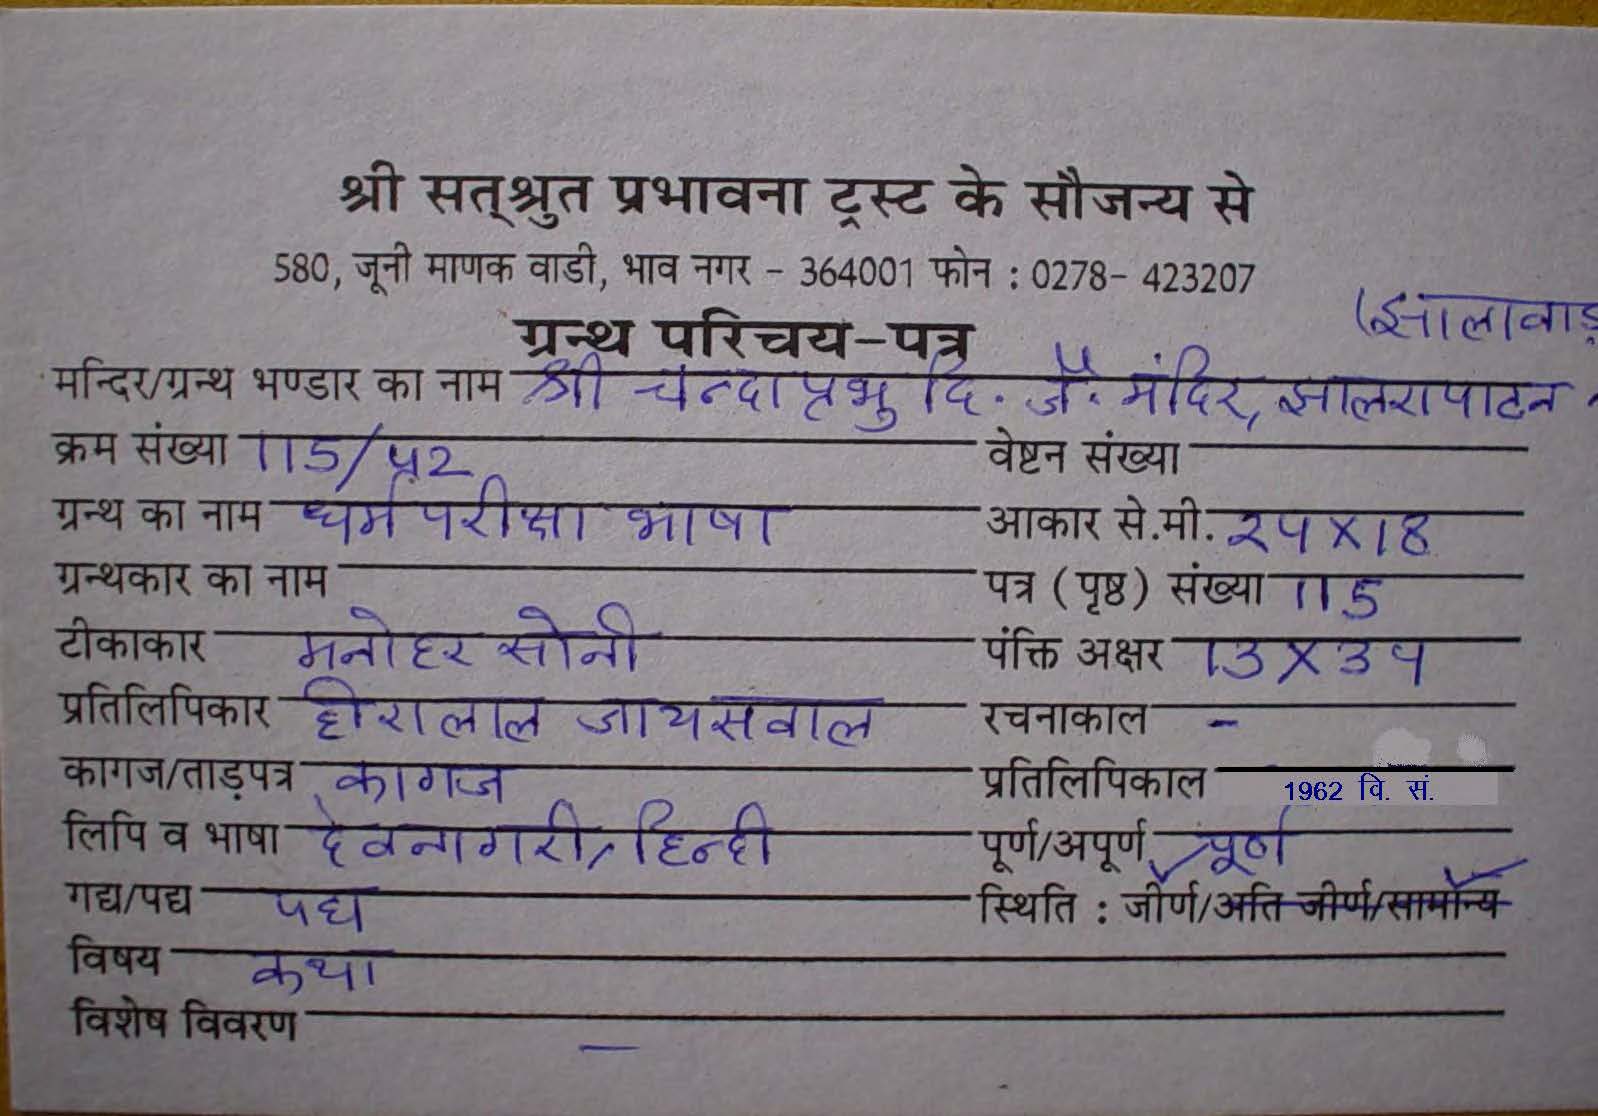 श्री सत्श्रुत प्रभावना ट्रस्ट के सौजन्य से
580, जूनी माणक वाडी, भाव नगर - 364001 फोन : 0278- 423207
ग्रन्थ परिचय-पत्र
(झालावाड़
मन्दिर/ग्रन्थ भण्डार का नाम श्री चन्दाप्रभु दि. जै. मंदिर, झालरापाटन
क्रम संख्या 115/ वेष्टन संख्या
ग्रन्थ का नाम धर्मपरीक्षा भाषा आकार से.मी. २५ X 18
ग्रन्थकार का नाम पत्र (पृष्ठ) संख्या 115
टीकाकार मनोहर सोनी पंक्ति अक्षर 13 X 3५
प्रतिलिपिकार हीरालाल जायसवाल रचनाकाल -
कागज/ताड़पत्र कागज प्रतिलिपिकाल 1962 वि. सं.
लिपि व भाषा देवनागरी, हिन्दी पूर्ण/अपूर्ण पूर्ण
गद्य/पद्य पद्य स्थिति : जीर्ण/अति जीर्ण/सामान्य
विषय कथा
विशेष विवरण —